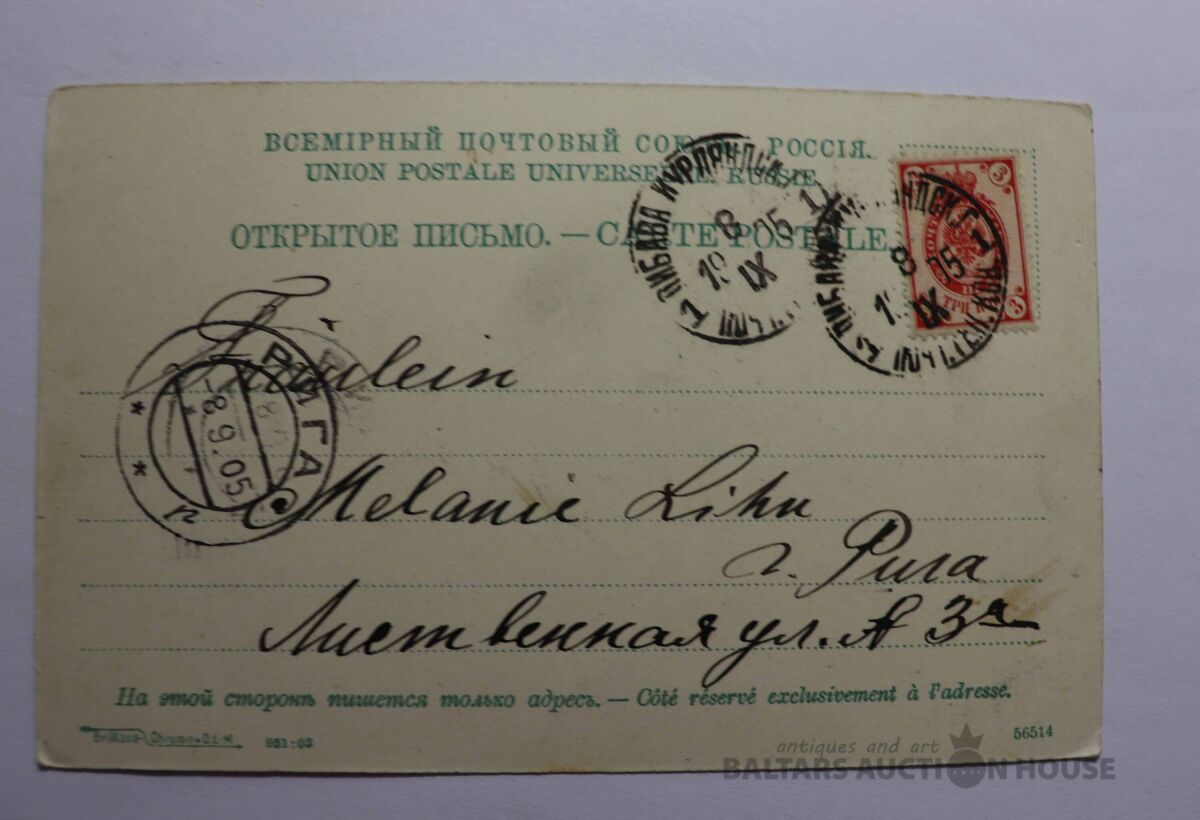 ВСЕМІРНЫЙ ПОЧТОВЫЙ СОЮЗЪ. РОССІЯ.
UNION POSTALE UNIVERSELLE. RUSSIE.
ОТКРЫТОЕ ПИСЬМО. — CARTE POSTALE.
ЛИБАВА КУРЛЯНДСК.
8 IX 05
3
3
РИГА
8 9.05
Fräulein
Melanie Lihn
г. Рига
Лиственная ул. № 3а
На этой сторонѣ пишется только адресъ. — Côté réservé exclusivement à l'adresse.
951:03
56514
antiques and art
BALTARS AUCTION HOUSE